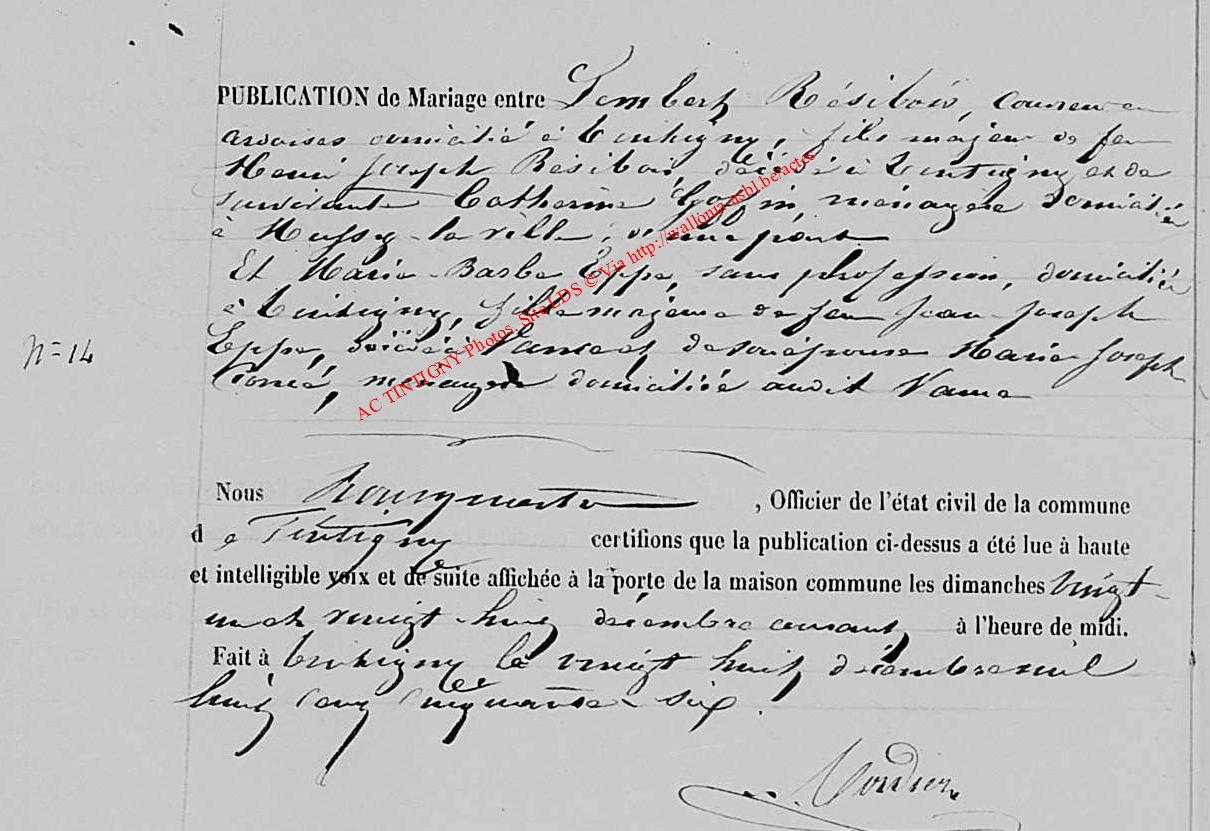 PUBLICATION de Mariage entre Lambert Résibois, couvreur en
ardoises domicilié à Tintigny, fils majeur de feu
Henri Joseph Résibois, décédé à Tintigny et de
survivante Catherine ménagère domiciliée
à Mussy-la-ville, d'une part
Et Marie-Barbe Eppe, sans profession, domiciliée
à Tintigny, fille majeure de feu Jean-Joseph
N= 14
Eppe, décédé à Vance et de son épouse Marie-Joseph
ménagère domiciliée audit Vance
AC TINTIGNY Photos. Site LDS © Via http://wallonia-asbl.be/actes
Nous , Officier de l'état civil de la commune
d e Tintigny certifions que la publication ci-dessus a été lue à haute
et intelligible voix et de suite affichée à la porte de la maison commune les dimanches vingt-
un et vingt-huit décembre courant à l'heure de midi.
Fait à Tintigny le vingt huit décembre mil
huit cent cinquante-six.